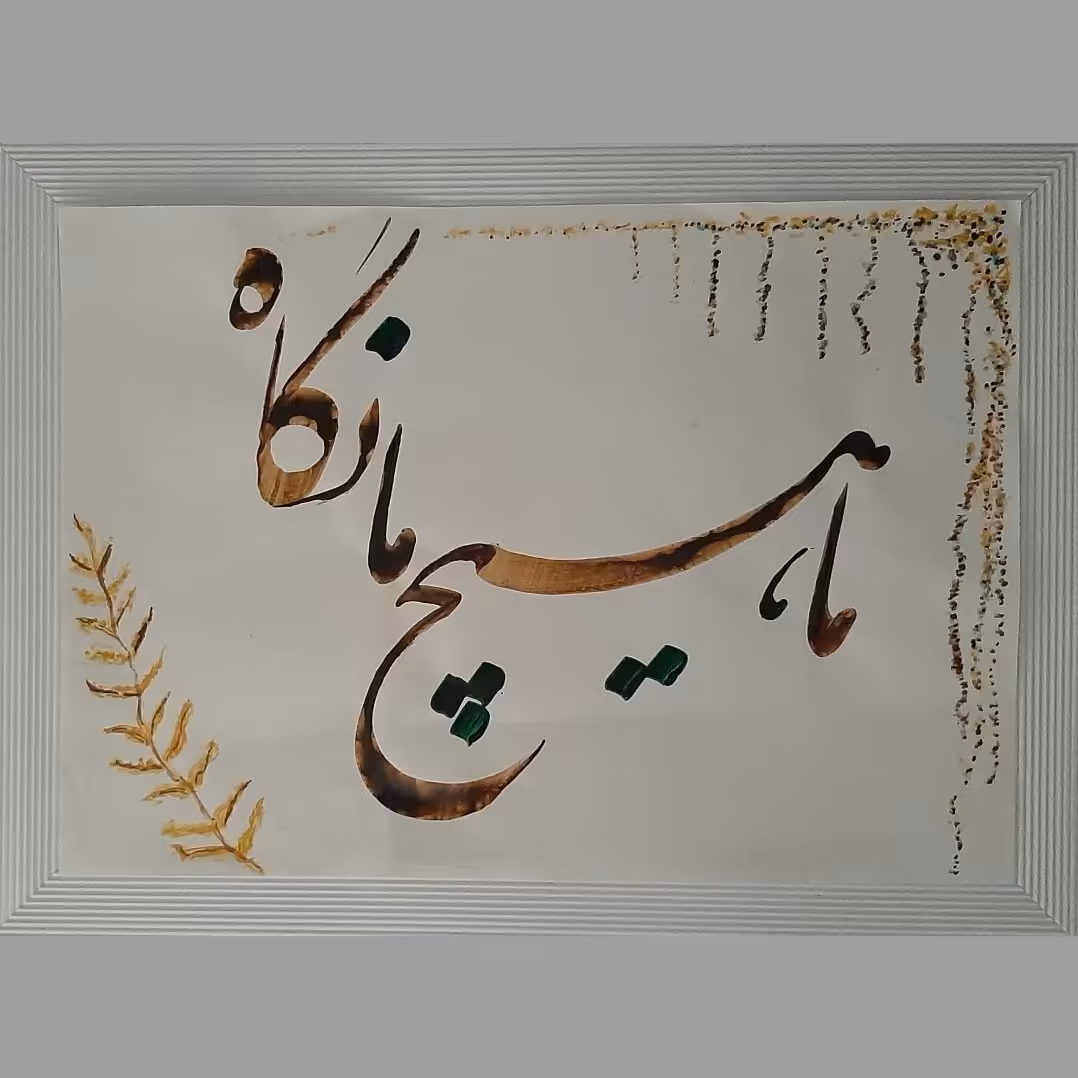 ما هیچ ما نگاه